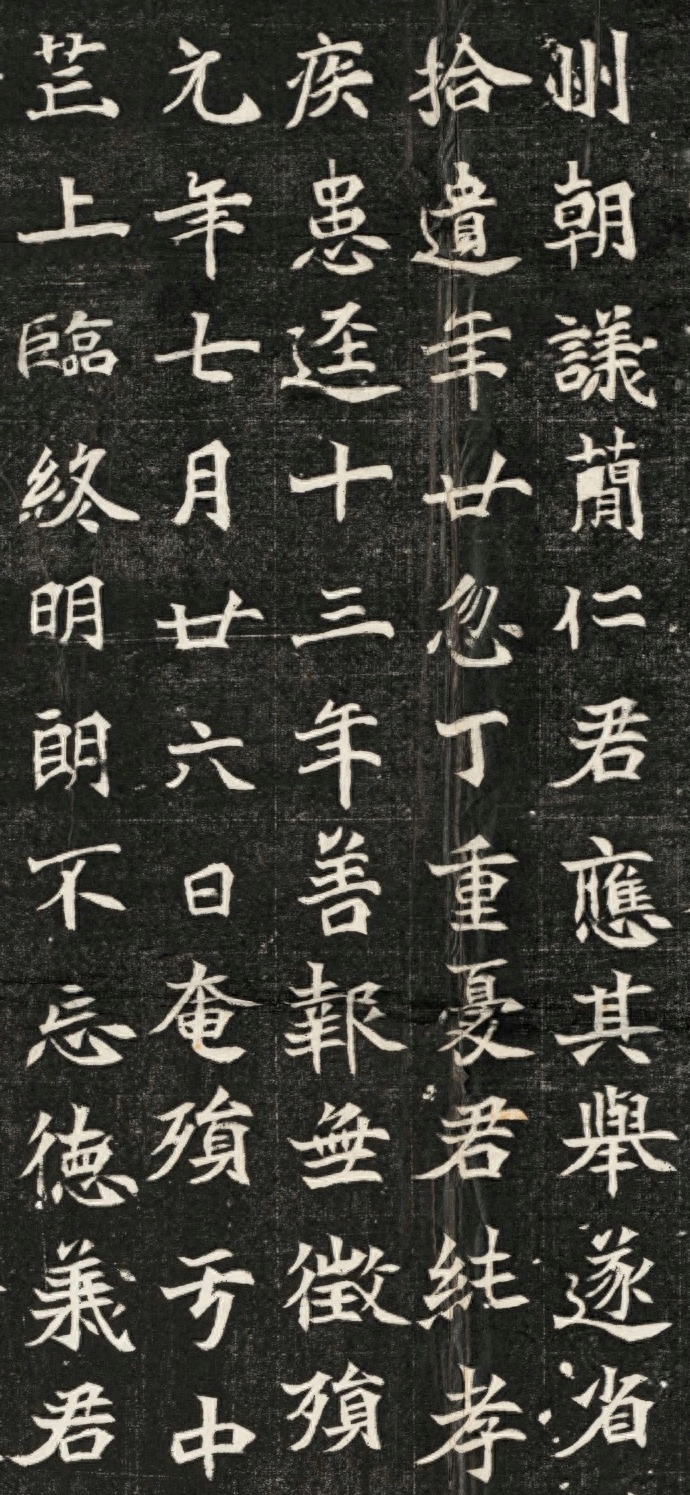 州朝議蕳仁君應其舉遂省
拾遺年廿忽丁重憂君純孝
疾患迳十三年善報無徵殞
元年七月廿六日奄殞亐中
芒上臨終明朗不忘德義君